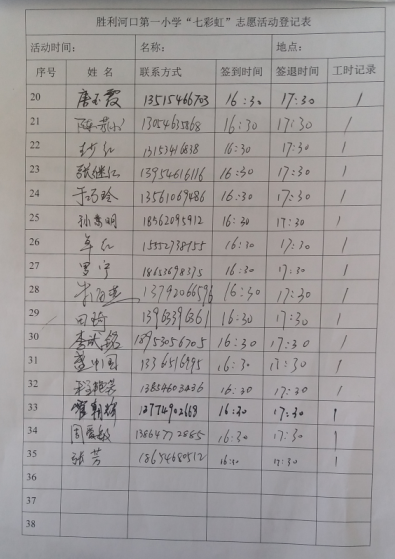 胜利河口第一小学“七彩虹”志愿活动登记表
活动时间： 名称： 地点：
序号 姓 名 联系方式 签到时间 签退时间 工时记录
20 唐玉霞 13515466703 16:30 17:30 1
21 13054635868 16:30 17:30 1
22 红 13153416838 16:30 17:30 1
23 张继红 13954616116 16:30 17:30 1
24 于巧玲 13561069486 16:30 17:30 1
25 孙書明 18562095912 16:30 17:30 1
26 单红 15552738955 16:30 17:30 1
27 罗宁 18653698375 16:30 17:30 1
28 13792066596 16:30 17:30 1
29 田琦 13963396361 16:30 17:30 1
30 李 18953056705 16:30 17:30 1
31 16:30 17:30 1
32 13854603836 16:30 17:30 1
33 16:30 17:30 1
34 周爱敏 13864772885 16:30 17:30 1
35 张芳 18654680512 16:30 17:30 1
36
37
38